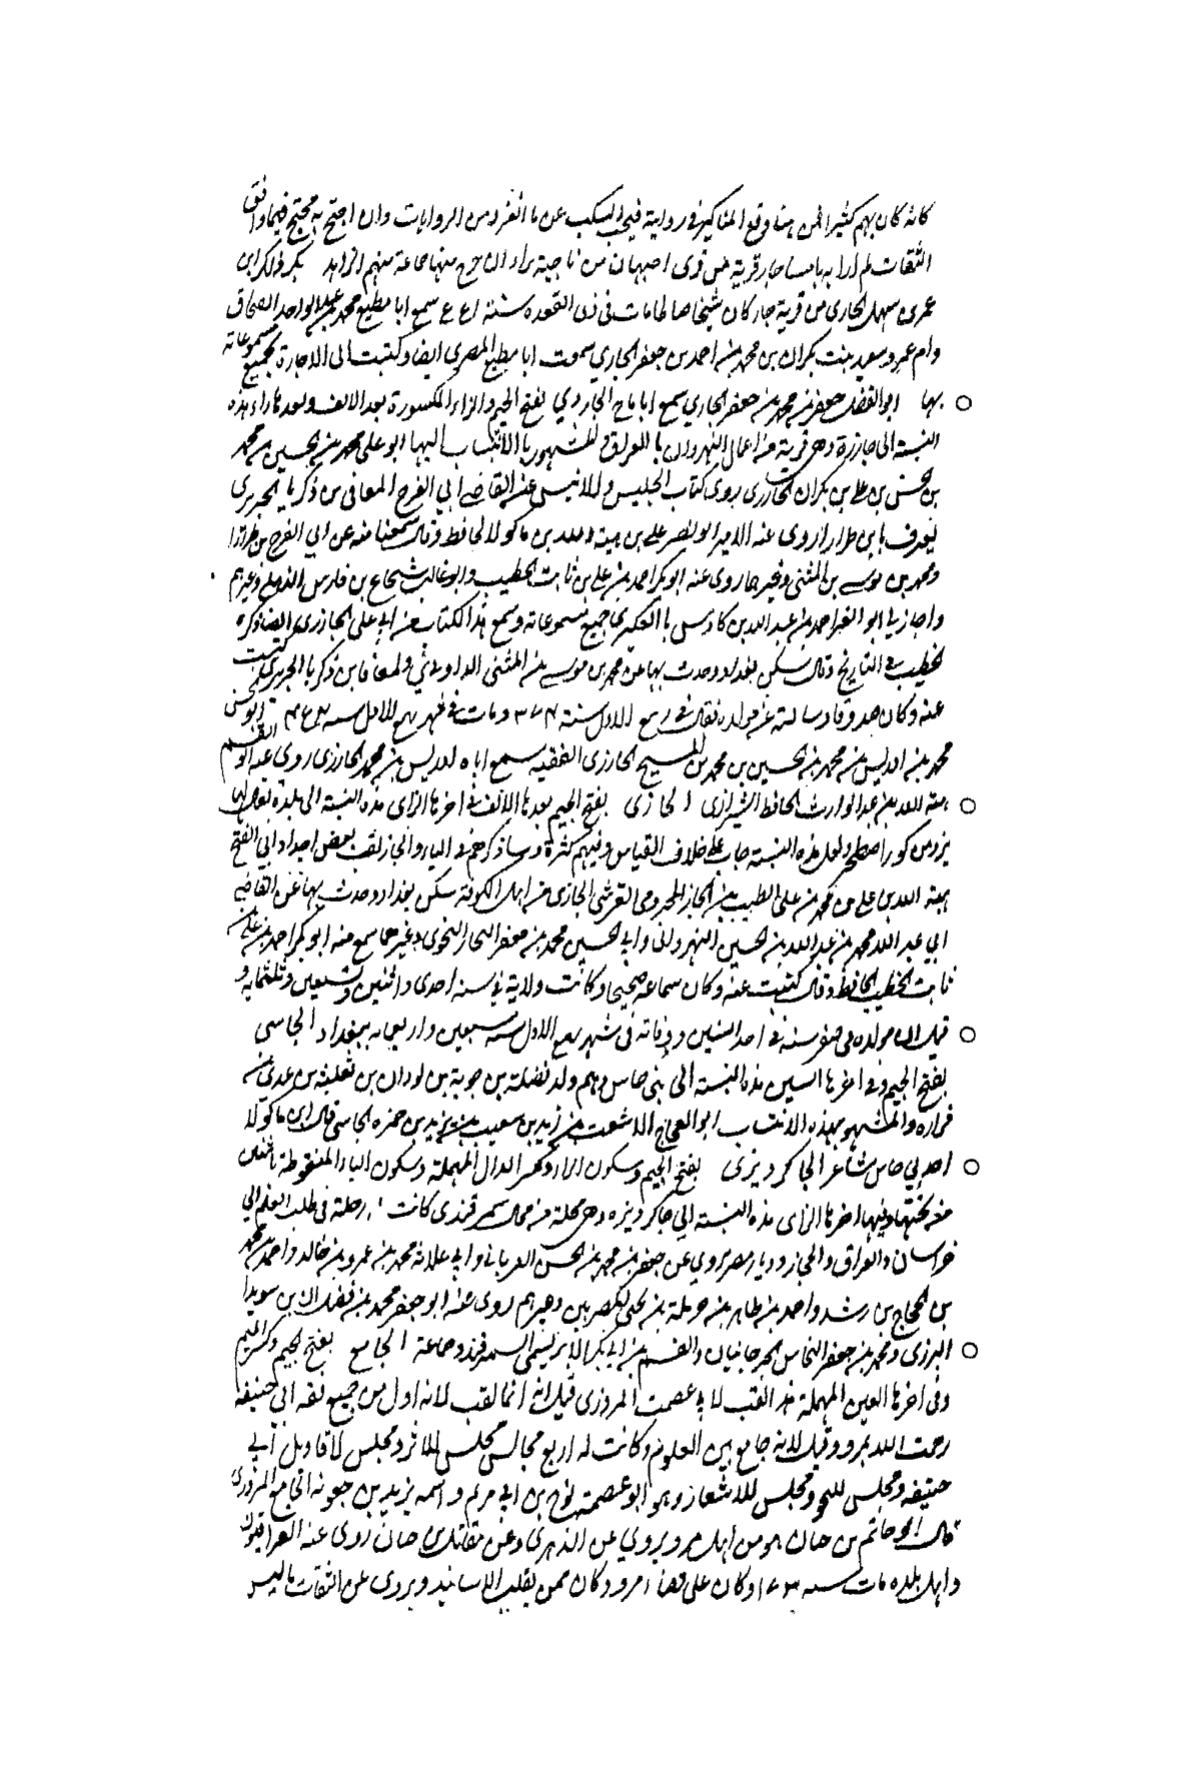 كانه كان يهم كثيرا فمن هنا وقع المناكير فى روايته فيجب التنكب عن ما انفرد من الروايات وان احتج به محتج فيما وافق
الثقات لم ار به باسا جار قرية من قرى اصبهان من ناحية براان خرج منها جماعة منهم الزاهد بكر ذاكر بن
عمر بن سهل الجارى من قرية جار كان شيخا صالحا مات فى ذى القعده سنة سمع ابا مطيع محمد بن عبدالواحد الصحاف
وام عمرو سعيده بنت بكران بن محمد بن احمد بن جعفر الجاري سمعت ابا مطيع المصرى ايضا وكتبت الى الاجازة بجميع مسموعاته
بها ابو الفضل جعفر بن محمد بن جعفر الجاري سمع الجازري بفتح الجيم والزاء المكسورة بعد الالف وبعدها راء هذه
النسبة الى جازرة وهى قرية من اعمال النهروان بالعراق والمشهور بالانتساب اليها ابو على محمد بن الحسين بن محمد
بن حسن بن على بن بكران الجازرى يروى كتاب الجليس والانيس عن القاضى ابي الفرج المعافى بن زكريا الجريرى
يعرف بابن طرارا روى عنه الامير ابو نصر على بن هبة الله بن ماكولا الحافظ وقال سمعنا منه عن ابي الفرج بن طرارا
ومحمد بن موسى بن المثنى وغيرهما روى عنه ابو بكر احمد بن على بن ثابت الخطيب وابو غالب شجاع بن فارس الذهلى وغيرهم
واجاز لى ابو العز احمد بن عبد الله بن كادس بالعكبري جميع مسموعاته وسمع هذا الكتاب من ابى على الجازرى ايضا ذكره
الخطيب فى التاريخ وقال سكن بغداد وحدث بها عن محمد بن موسى بن المثنى الداودي والمعافا بن زكريا الجريري كتبت
عنه وكان صدوقا وسالته عن مولده فقال فى ربيع الاول سنة ومات فى شهر ربيع الاول سنه ابو الحسن
محمد بن ادريس بن محمد بن الحسين بن محمد بن المسيح الجازرى الفقيه سمع اباه ادريس بن محمد الجازرى روى عنه ابو القسم
هبة الله بن عبد الوارث الحافظ الشيرازى الجازى بفتح الجيم بعدها الالف فى اخرها الزاى هذه النسبة الى بلدة يقال لها
من كور اصطخر ولعل هذه النسبة جاءت على خلاف القياس وفيهم كثرة وساذكرهم فى الياء والجاز لقب بعض اجداد ابى الفتح
هبة الله بن على بن محمد بن على الطيب بن الجاز المخزومى القرشى الجازى من اهل الكوفة سكن بغداد وحدث بها عن القاضى
ابي عبد الله محمد بن عبد الله بن الحسين النهروانى وابى الحسين محمد بن جعفر النجار النحوى وغيرهما سمع منه ابو بكر احمد بن على بن
ثابت الخطيب الحافظ وقال كتبت عنه وكان سماعه صحيحا وكانت ولادته في سنه احدى واثنين وتسعين وثلثمايه و
قيل ان مولده فى صفر سنة فى احد السنين ووفاته فى شهر ربيع الاول سنه سبعين واربعمايه ببغداد الجاسى
بفتح الجيم وفى اخرها السين هذه النسبة الى بنى جاس وهم ولد نضلة بن جوية بن لوذان بن ثعلبة بن عدى بن
فزاره والمشهور بهذه الانتساب ابو العجاج الاشعث بن زيد بن شعيب بن يزيد بن ضمره الجاسى قال ابن ماكولا
احد بني جاس شاعر الجاكرديزى بفتح الجيم وسكون الراء وكسر الدال المهملة وسكون الياء المنقوطة باثنين
من تحتها وفيها اخرها الزاى هذه النسبة الي جاكرديزه وهى محلة من محال سمرقند كانت له رحلة فى طلب العلم الى
خراسان والعراق والحجاز وديار مصر يروي عن جعفر بن محمد بن الحسن الفريابي وابى علاثة محمد بن عمرو بن خالد واحمد بن محمد
بن الحجاج بن رشد واحمد بن طاهر بن حرملة بن يحيى المصريين وغيرهم روى عنه ابو جعفر محمد بن فضلان بن سويد
البزدى ومحمد بن جعفر النحاس الجرجانيان والقسم بن ابى بكر الابريسمى السمرقندى وجماعة الجامع بفتح الجيم وكسر الميم
وفى اخرها العين المهملة هذا اللقب لابى عصمت المروزى قيل انه انما لقب لانه اول من جمع فقه ابى حنيفة
رحمت الله بمرو وقيل لانه جامع بين العلوم وكانت له اربع مجالس مجلس للاثر ومجلس لاقاويل ابي
حنيفه ومجلس للنحو ومجلس للاشعار وهو ابو عصمة نوح بن ابى مريم واسمه يزيد بن جعونه الجامع المروزى
قال ابو حاتم بن حبان هو من اهل مرو يروي عن الزهرى وعن مقاتل بن حيان روى عنه العراقيون
واهل بلده مات سنه ١٧٣ وكان على قضاء مرو وكان ممن يقلب الاسانيد ويروى عن الثقات ما ليس